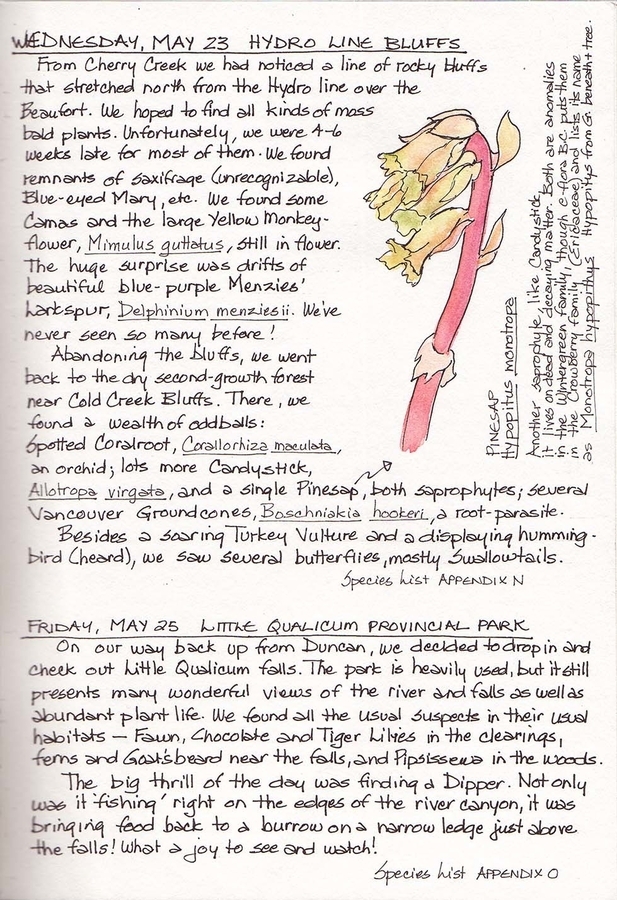 WEDNESDAY, MAY 23 HYDRO LINE BLUFFS
From Cherry Creek we had noticed a line of rocky bluffs
that stretched north from the Hydro line over the
Beaufort. We hoped to find all kinds of moss
bald plants. Unfortunately, we were 4-6
weeks late for most of them. We found
remnants of saxifrage (unrecognizable),
Blue-eyed Mary, etc. We found some
Camas and the large Yellow Monkey-
flower, Mimulus guttatus, still in flower.
The huge surprise was drifts of
beautiful blue-purple Menzies'
Larkspur, Delphinium menziesii. We've
never seen so many before!
Abandoning the bluffs, we went
back to the dry second-growth forest
near Cold Creek Bluffs. There, we
found a wealth of oddballs:
Spotted Coralroot, Corallorhiza maculata,
an orchid; lots more Candystick,
Allotropa virgata, and a single Pinesap, both saprophytes; several
Vancouver Groundcones, Boschniakia hookeri, a root-parasite.
Besides a soaring Turkey Vulture and a displaying humming-
bird (heard), we saw several butterflies, mostly Swallowtails.
Species List APPENDIX N
PINESAP
Hypopitus monotropa
Another saprophyte, like Candystick,
it lives on dead and decaying matter. Both are anomalies
in the Wintergreen family, though e-flora B.C. puts them
in the Crowberry family (Ericaceae) and lists its name
as Monotropa hypopithys Hypopitys from G. beneath + tree.
FRIDAY, MAY 25 LITTLE QUALICUM PROVINCIAL PARK
On our way back up from Duncan, we decided to drop in and
check out Little Qualicum falls. The park is heavily used, but it still
presents many wonderful views of the river and falls as well as
abundant plant life. We found all the usual suspects in their usual
habitats — Fawn, Chocolate and Tiger Lilies in the clearings,
ferns and Goatsbeard near the falls, and Pipsissewa in the woods.
The big thrill of the day was finding a Dipper. Not only
was it 'fishing' right on the edges of the river canyon, it was
bringing food back to a burrow on a narrow ledge just above
the falls! What a joy to see and watch!
Species List APPENDIX O